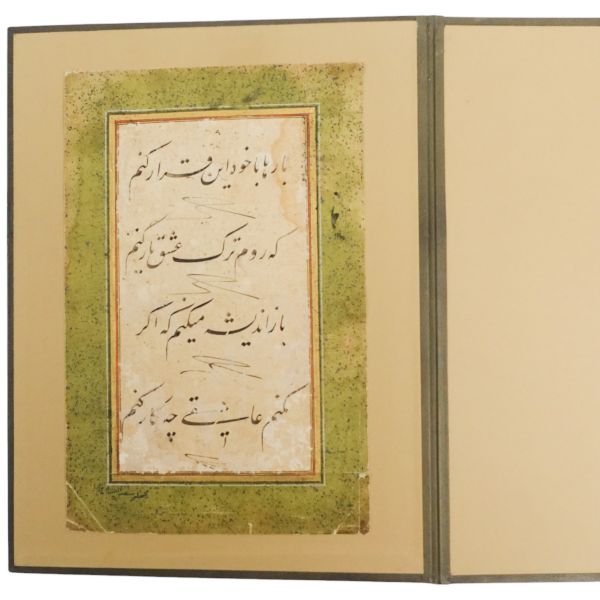 بارها با خود این قرار کنم
که روم ترک عشق یار کنم
باز اندیشه میکنم که اگر
نکنم عاشقی چه کار کنم